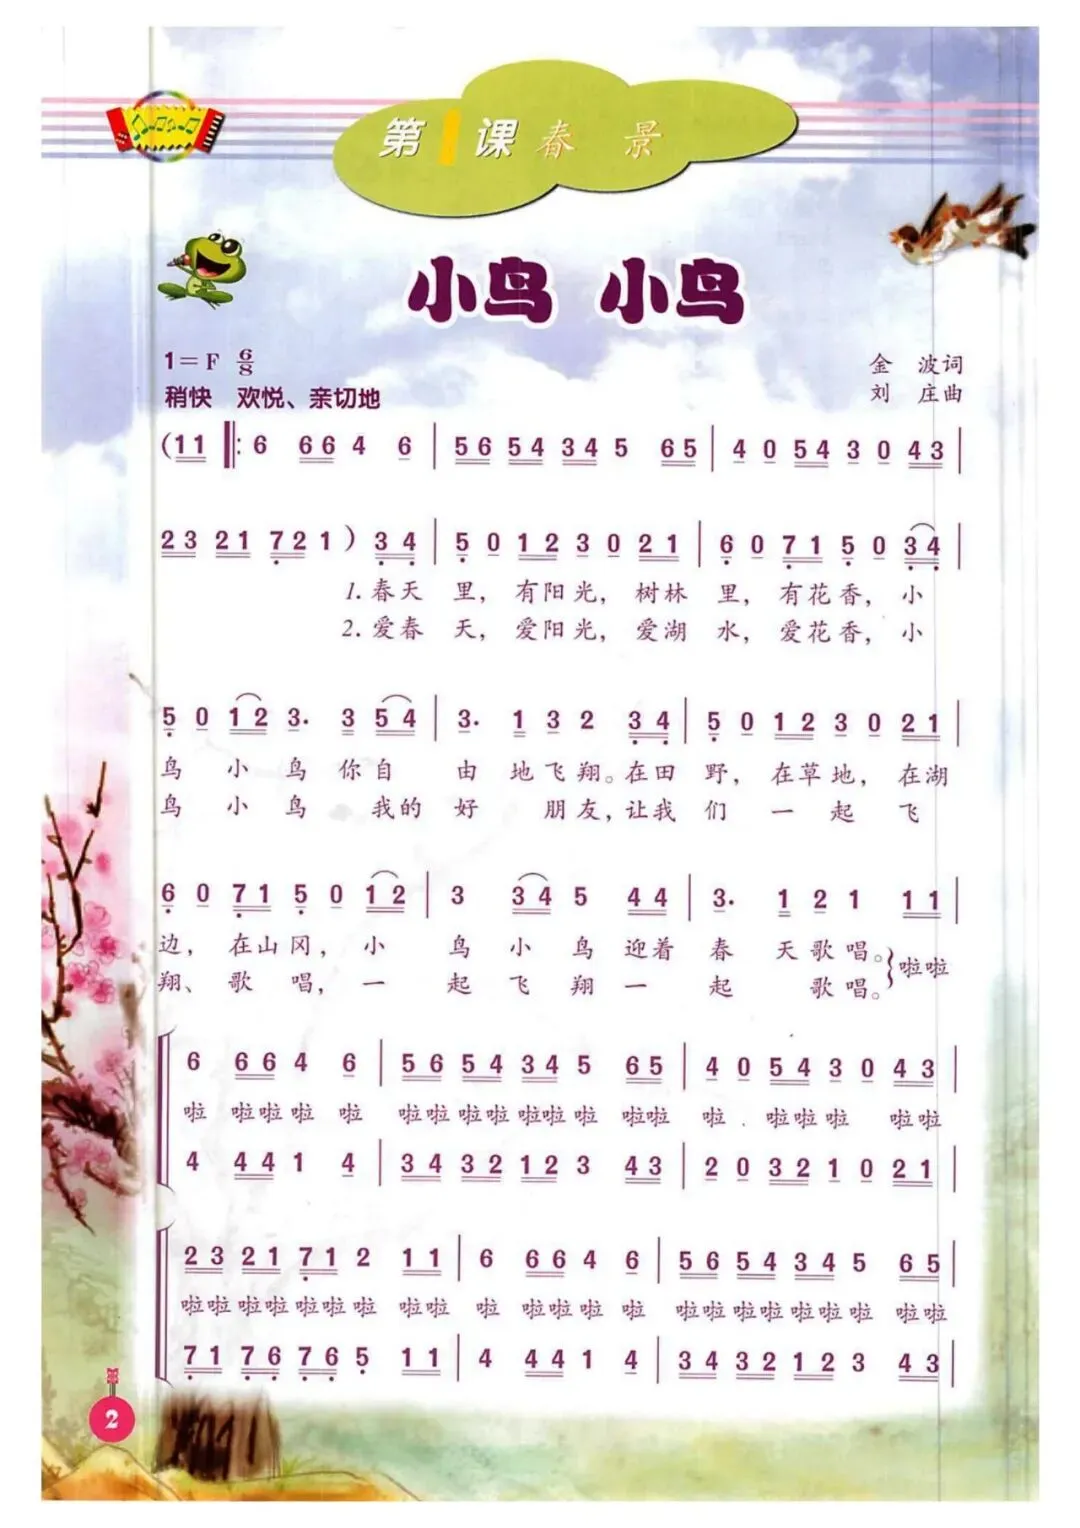 第1课 春 景
小鸟 小鸟
1=F 6/8
金 波词
稍快 欢悦、亲切地
刘 庄曲
(11 ‖: 6 66 4 6 | 56 54 34 5 65 | 4 0 54 3 0 43 |
23 21 7̣2 1 ) 3̣4̣ | 5̣ 0 12 3 0 21 | 6̣ 0 7̣1 5̣ 0 3̣4̣ |
1. 春天 里, 有阳光, 树林 里, 有花香, 小
2. 爱春 天, 爱阳光, 爱湖 水, 爱花香, 小
5̣ 0 12 3. 3 54 | 3. 1 3 2 3̣4̣ | 5̣ 0 12 3 0 21 |
鸟 小 鸟 你自 由 地飞翔。在田 野, 在草地, 在湖
鸟 小 鸟 我的 好 朋友,让我 们 一 起 飞
6̣ 0 7̣1 5̣ 0 12 | 3 34 5 44 | 3. 1 2 1 11 |
边, 在山冈, 小 鸟 小 鸟 迎着 春 天歌唱。
翔、 歌 唱, 一 起 飞 翔 一 起 歌唱。} 啦啦
6 66 4 6 | 56 54 34 5 65 | 4 0 54 3 0 43 |
啦 啦啦啦 啦 啦啦啦啦啦啦啦 啦啦 啦 啦啦啦 啦啦
4 44 1 4 | 34 32 12 3 43 | 2 0 32 1 0 21 |
23 21 7̣1 2 11 | 6 66 4 6 | 56 54 34 5 65 |
啦啦啦啦啦啦啦 啦啦 啦 啦啦啦 啦 啦啦啦啦啦啦啦 啦啦
7̣1 7̣6̣ 7̣6̣ 5̣ 11 | 4 44 1 4 | 34 32 12 3 43 |
2